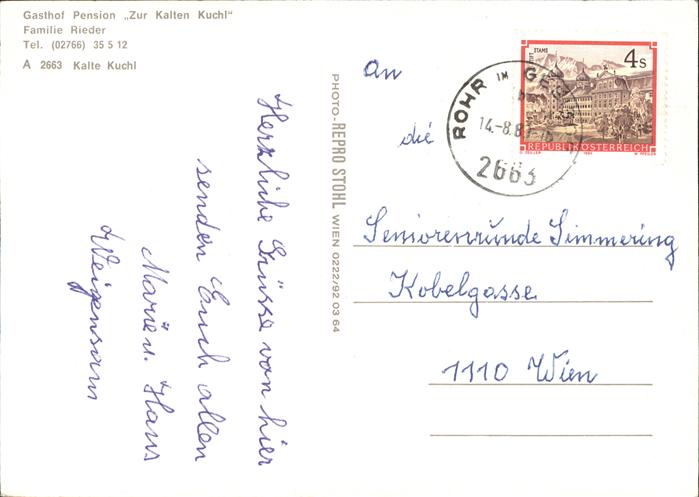 Gasthof Pension „Zur Kalten Kuchl"
Familie Rieder
Tel. (02766) 35 5 12
A 2663 Kalte Kuchl
Herzliche Grüsse von hier
senden Euch allen
Marie u. Hans
PHOTO-REPRO STOHL WIEN 0222/92 03 64
An
die
Seniorenrunde Simmering
Kobelgasse
1110 Wien
ROHR IM
14.-8.8
2663
STIFT STAMS
4 S
REPUBLIK ÖSTERREICH